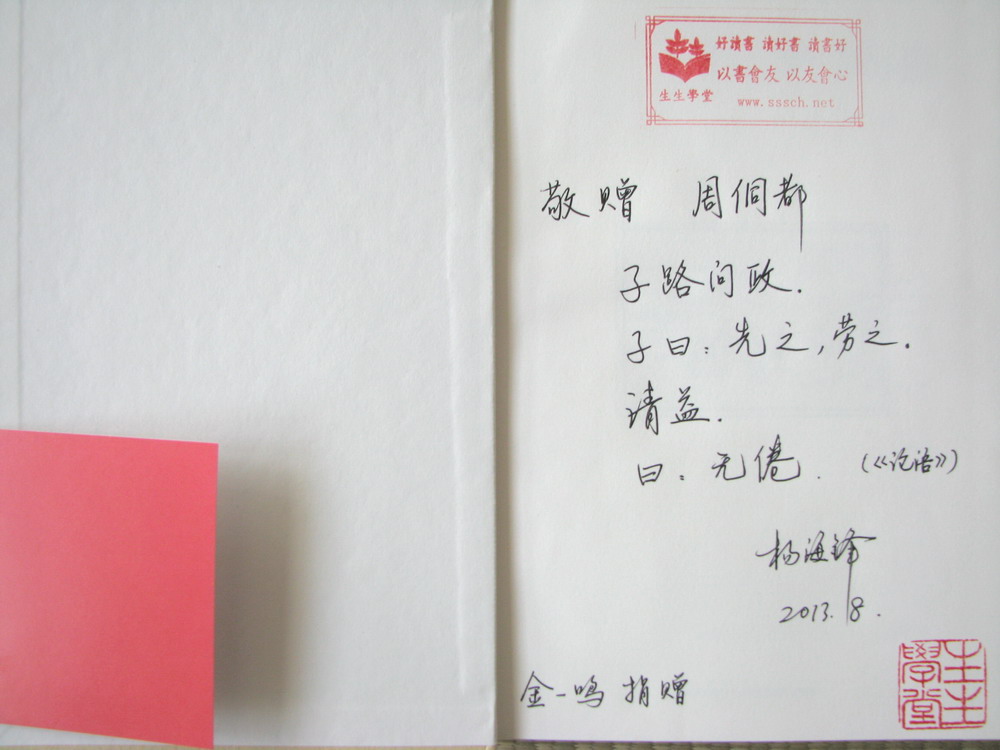 好讀書 讀好書 讀書好
以書會友 以友會心
生生學堂
www.sssch.net
敬赠 周侗都
子路问政.
子曰：先之,劳之.
请益.
曰：无倦. (《论语》)
杨海锋
2013.8.
金一鸣 捐赠
生生學堂